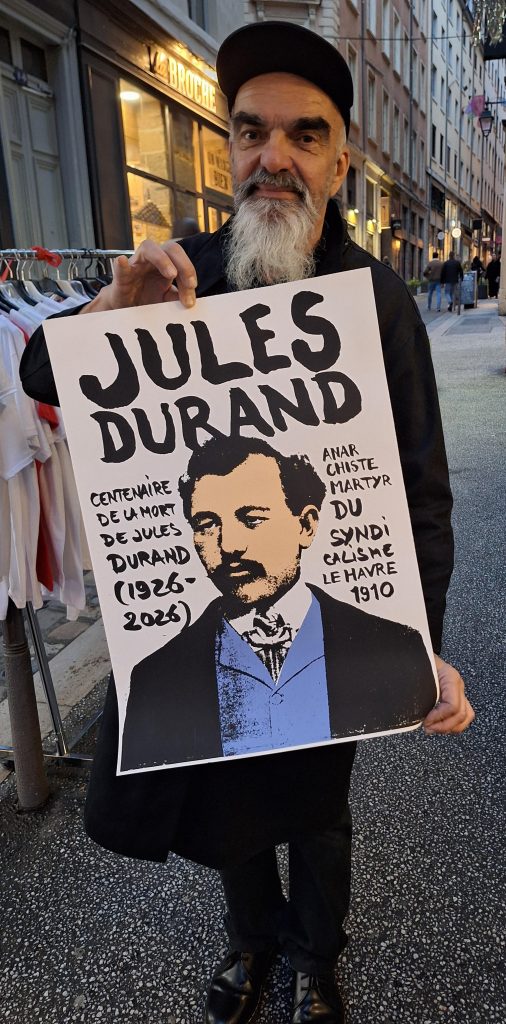 BROCHE
JULES
DURAND
CENTENAIRE
DE LA MORT
DE JULES
DURAND
(1926-
2026)
ANAR
CHISTE
MARTYR
DU
SYNDI
CALISME
LE HAVRE
1910